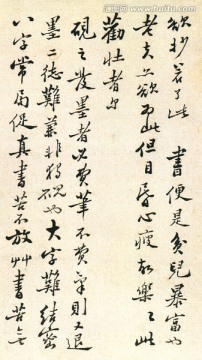 欲抄若了此書便是貧兒暴富也
老夫亦欲為此但目昏心疲故樂以此
勸壯者爾
硯之發墨者必費筆不費筆則退
墨二德難兼非獨硯也大字難結密
小字常局促真書苦不放艸書苦無